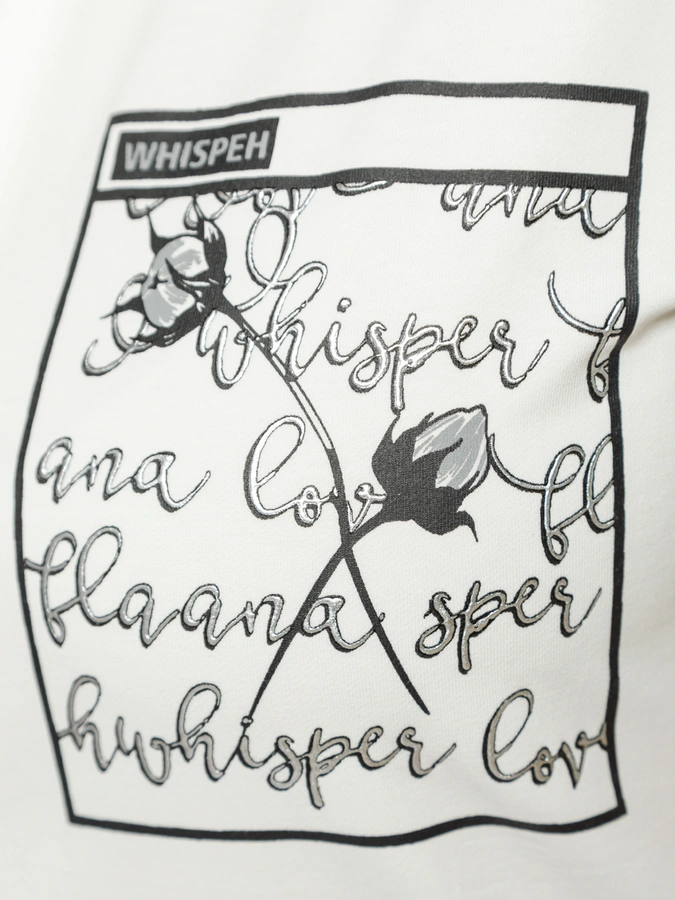 WHISPEH
and
whisper
ana lov
blaana sper
hwhisper love